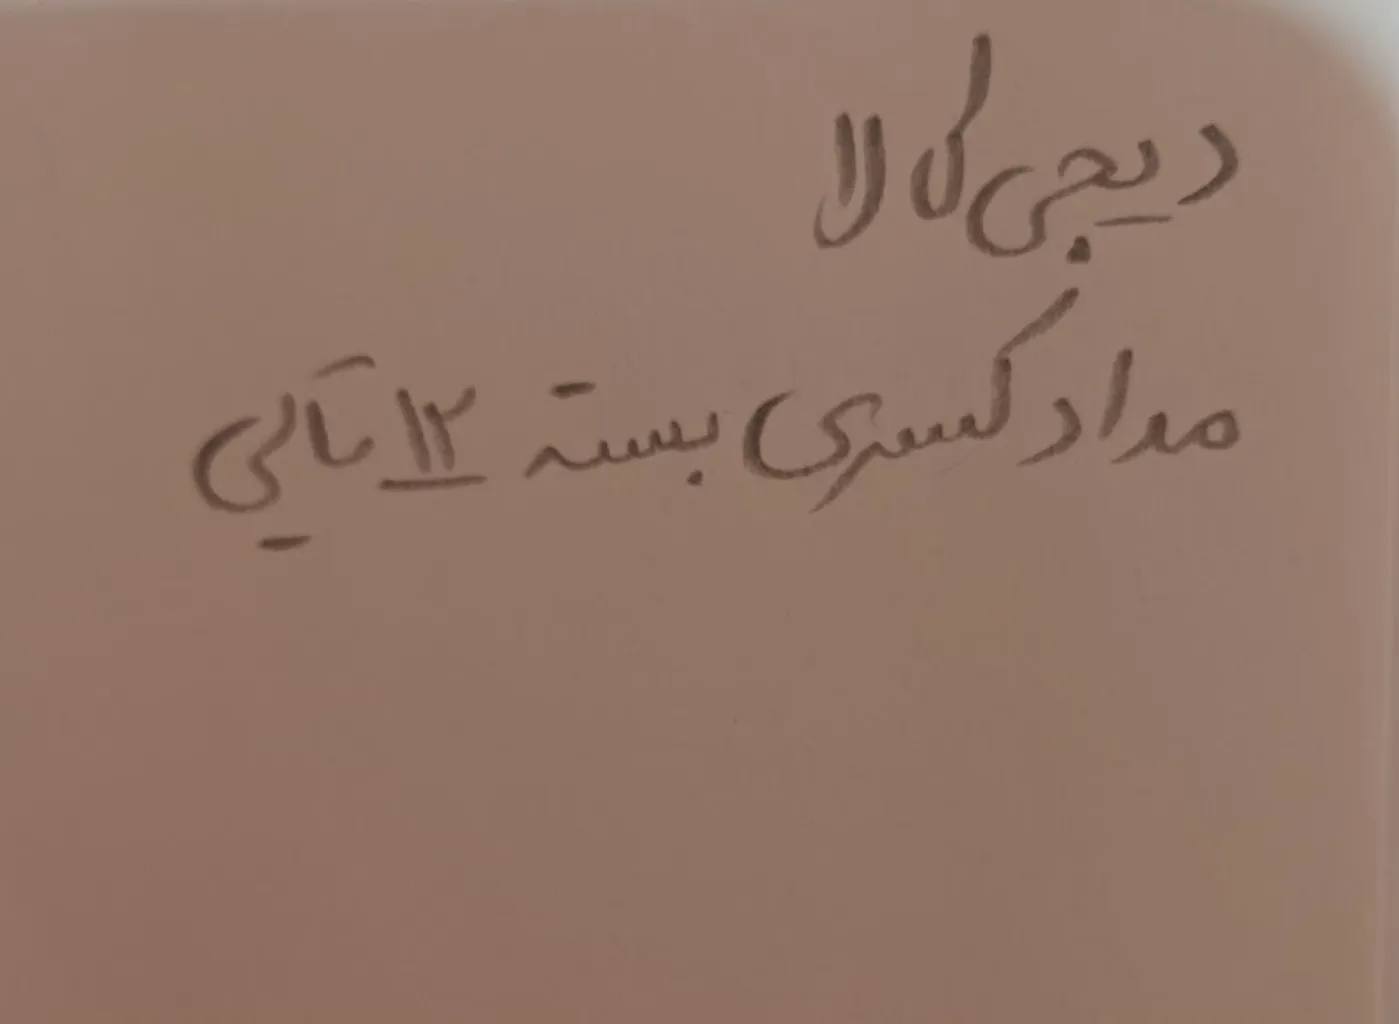 دیجی کالا
مداد کسری بسته ۱۲ تایی